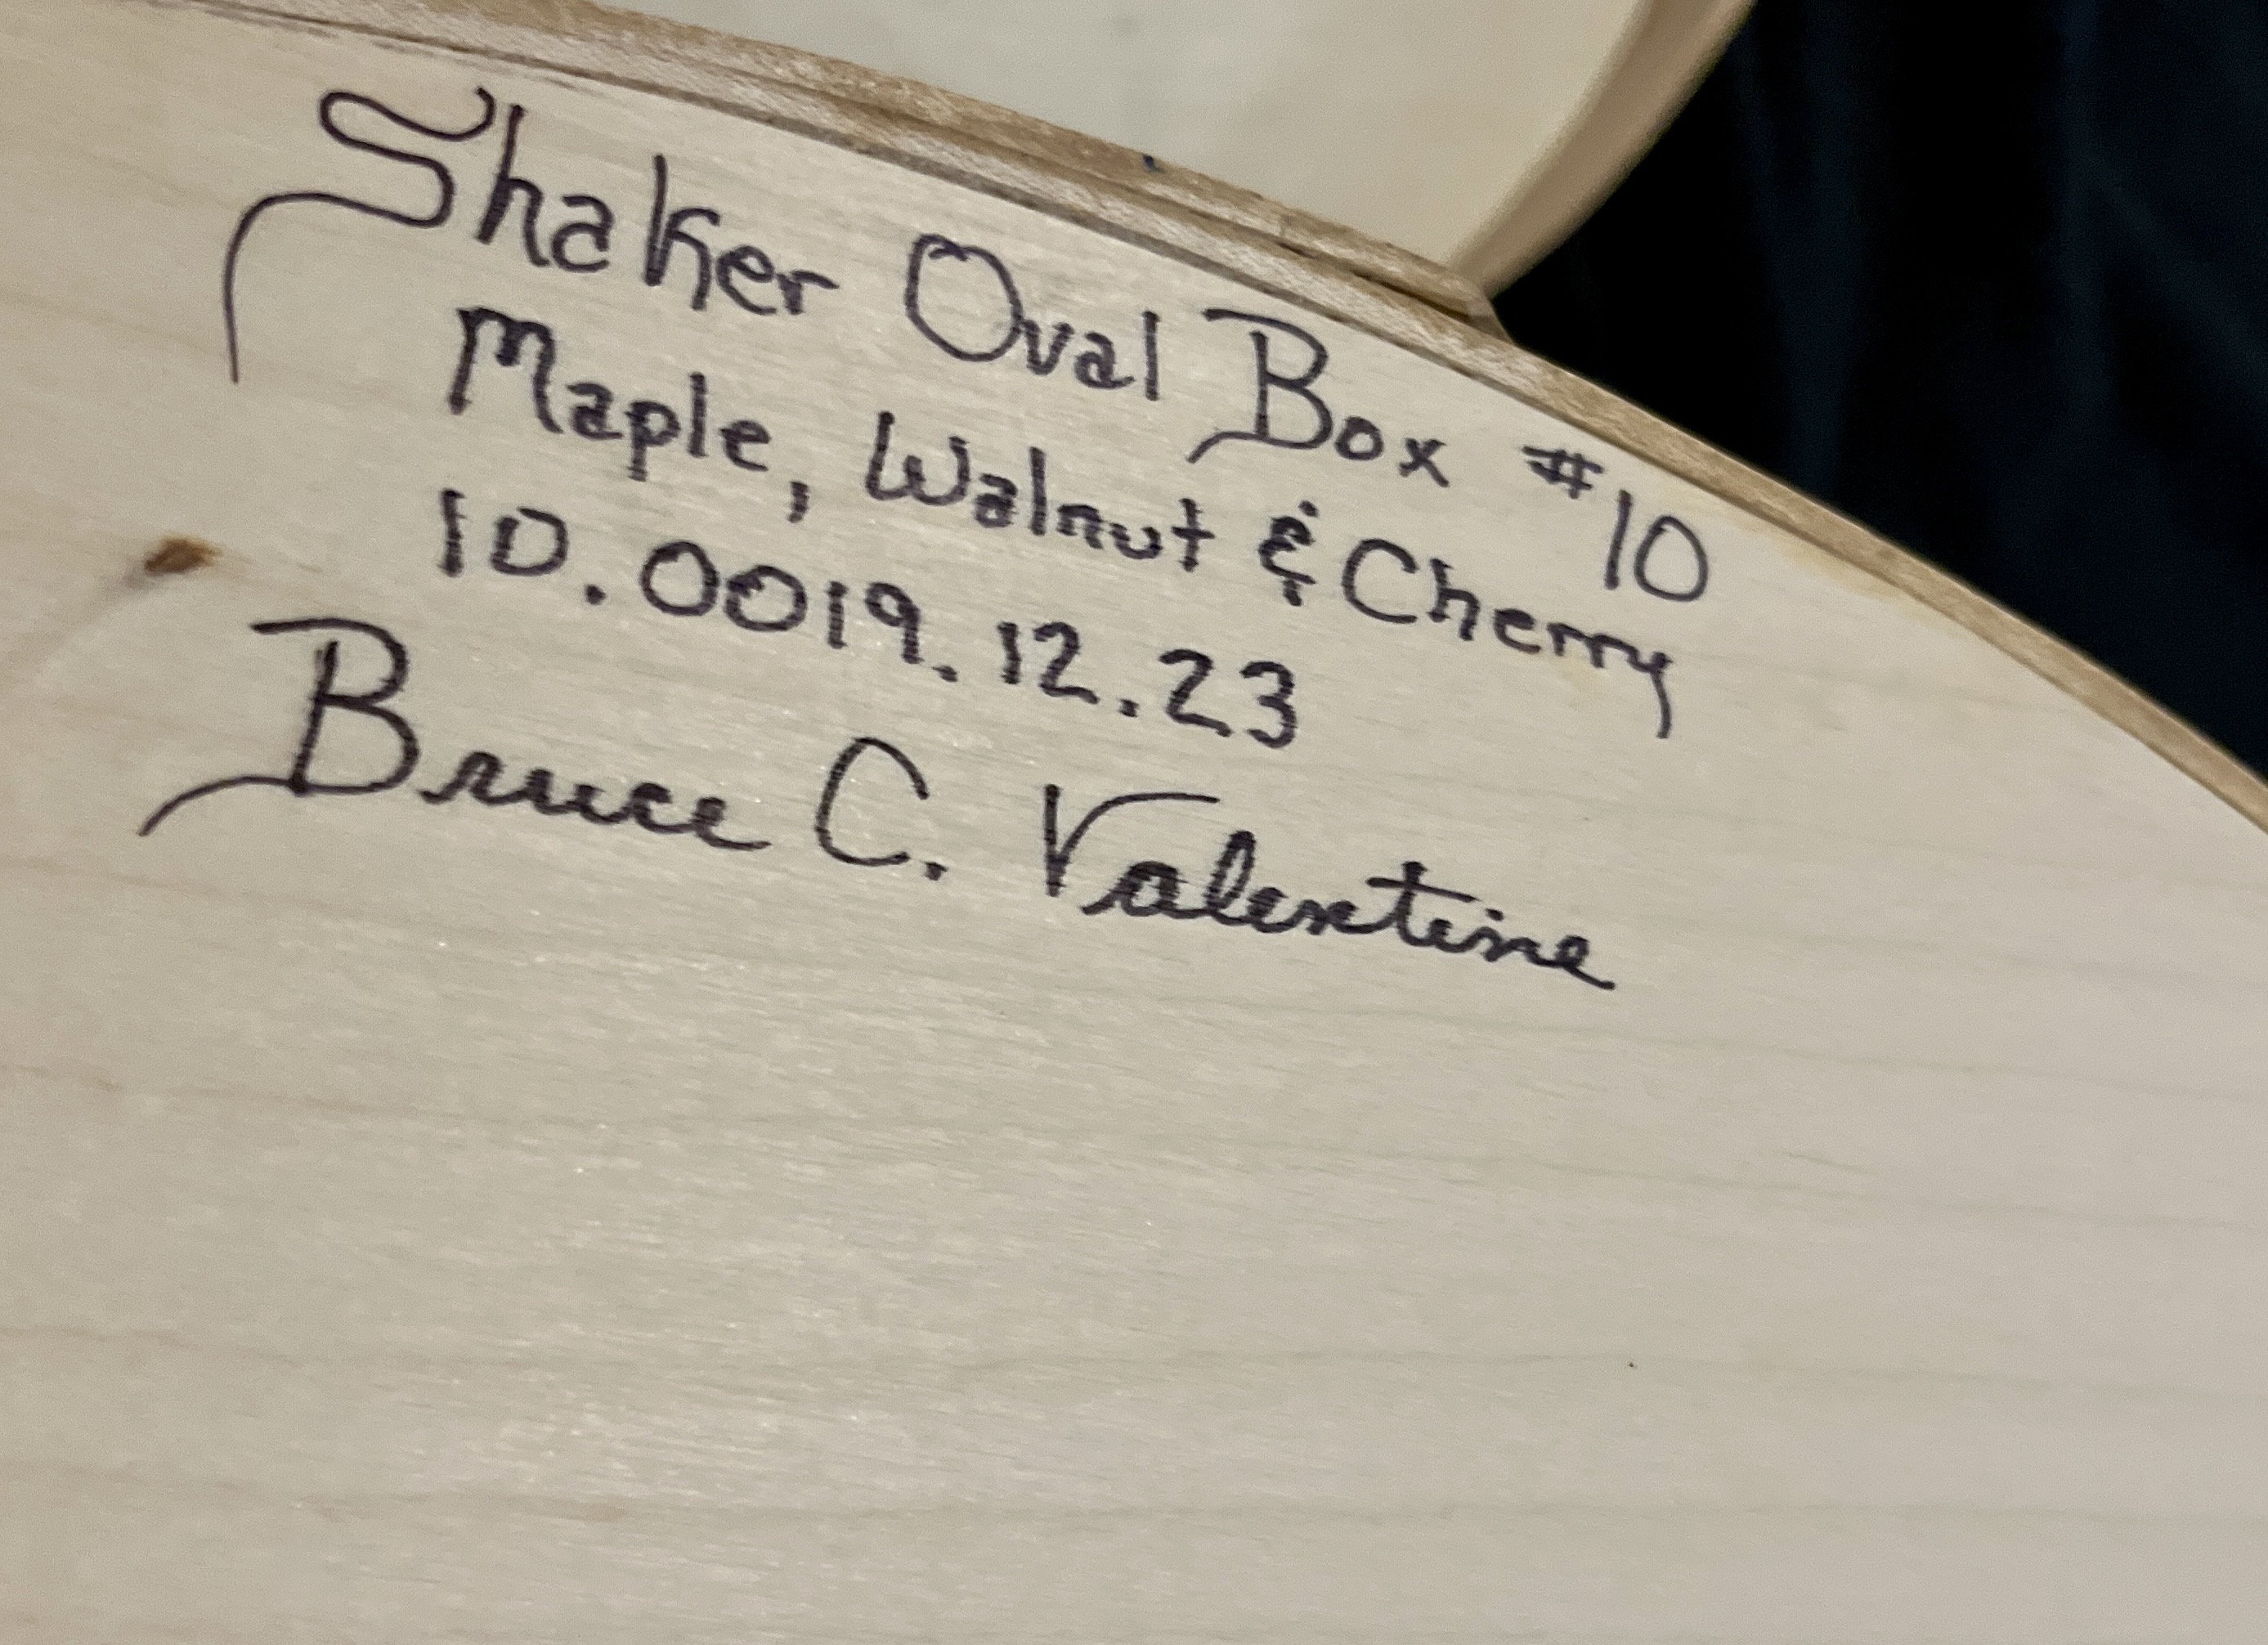 Shaker Oval Box #10
Maple, Walnut & Cherry
10.0019.12.23
Bruce C. Valentine